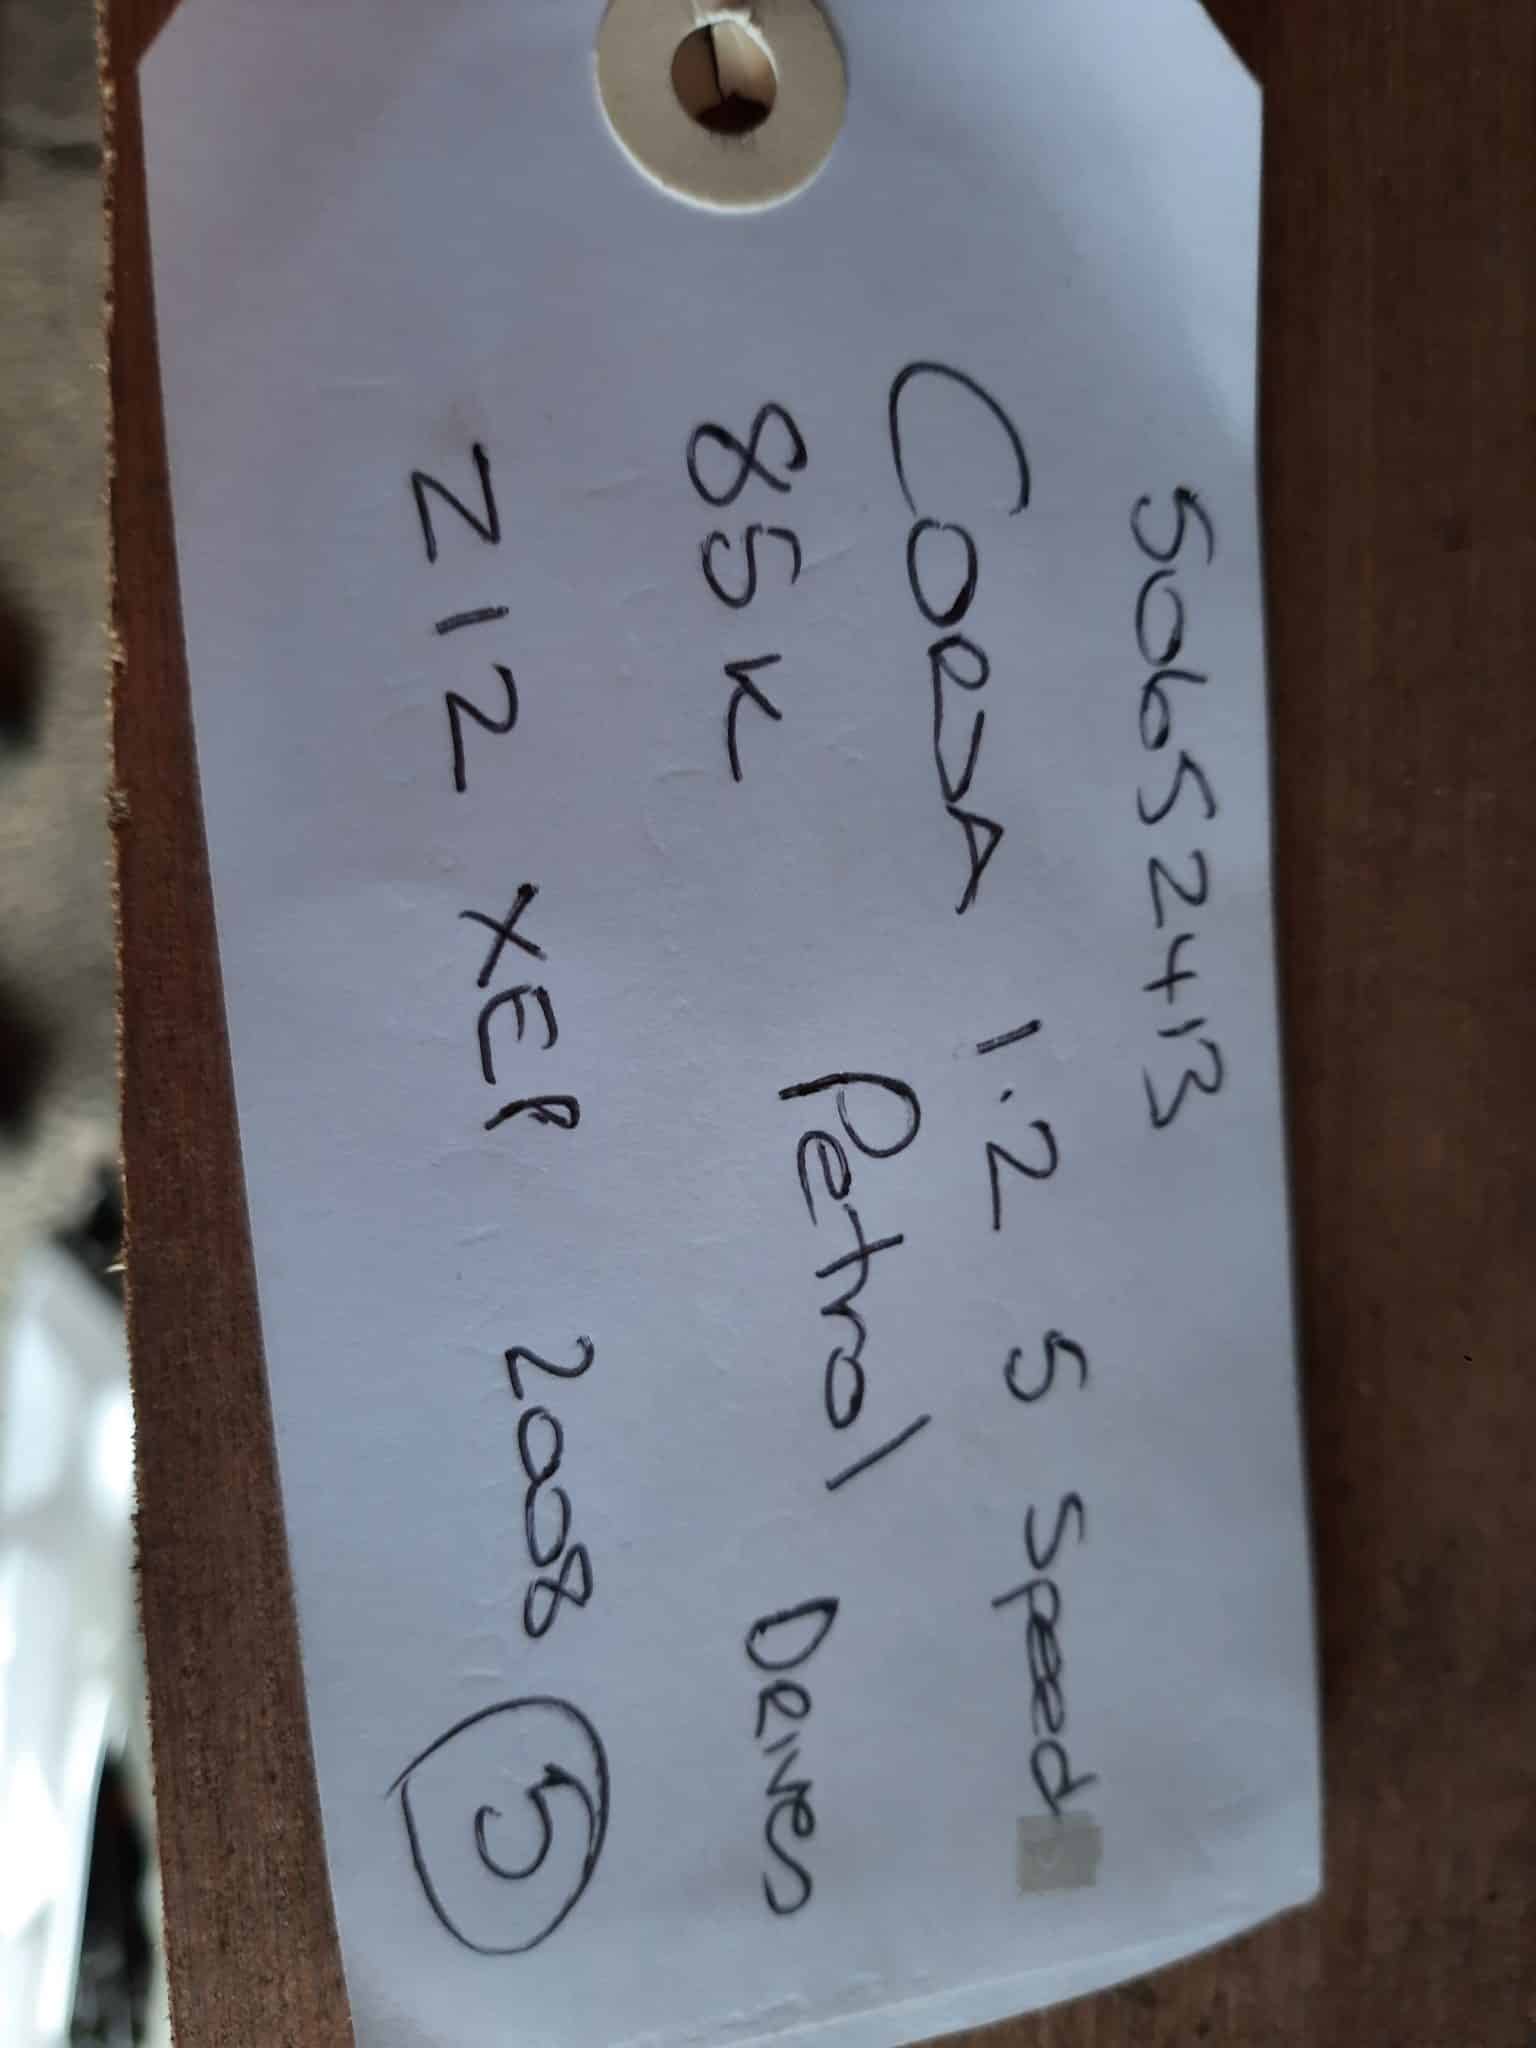 50652413
CORSA 1.2 5 Speed
85K Petrol DRIVES
Z12 XEP 2008 5